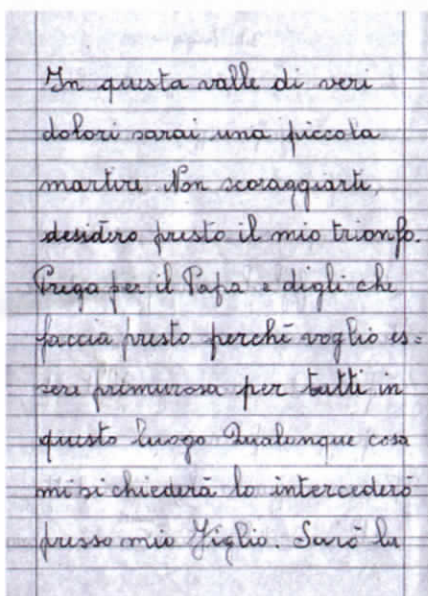 In questa valle di veri
dolori sarai una piccola
martire Non scoraggiarti,
desidero presto il mio trionfo.
Prega per il Papa e digli che
faccia presto perchè voglio es=
sere primurosa per tutti in
questo luogo Qualunque cosa
mi si chiederà lo intercederò
presso mio Figlio. Sarò la